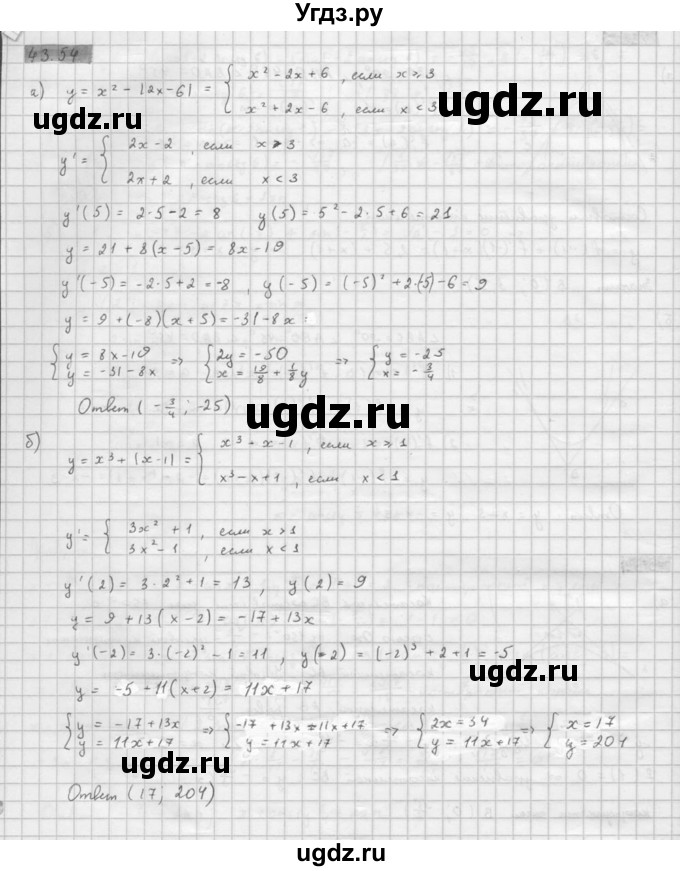 Угдз.ру
43.54.
а) y = x² - |2x-6| = { x² - 2x + 6, если x ⩾ 3
x² + 2x - 6, если x < 3
ugdz.ru
ugdz.ru
y' = { 2x - 2, если x > 3
2x + 2, если x < 3
y'(5) = 2·5 - 2 = 8 y(5) = 5² - 2·5 + 6 = 21
y = 21 + 8(x - 5) = 8x - 19
y'(-5) = -2·5 + 2 = -8, y(-5) = (-5)² + 2·(-5) - 6 = 9
y = 9 + (-8)(x + 5) = -31 - 8x
{ y = 8x - 19 => { 2y = -50 => { y = -25
y = -31 - 8x x = 19/8 + 1/8 y x = -3/4
Ответ (-3/4; -25)
ugdz.ru
б) y = x³ + |x-1| = { x³ + x - 1, если x ⩾ 1
x³ - x + 1, если x < 1
ugdz.ru
y' = { 3x² + 1, если x > 1
3x² - 1, если x < 1
y'(2) = 3·2² + 1 = 13, y(2) = 9
y = 9 + 13(x - 2) = -17 + 13x
y'(-2) = 3·(-2)² - 1 = 11, y(-2) = (-2)³ + 2 + 1 = -5
ugdz.ru
y = -5 + 11(x + 2) = 11x + 17
{ y = -17 + 13x => { -17 + 13x = 11x + 17 => { 2x = 34 => { x = 17
y = 11x + 17 y = 11x + 17 y = 11x + 17 y = 204
ugdz.ru
Ответ (17; 204)
ugdz.ru
ugdz.ru